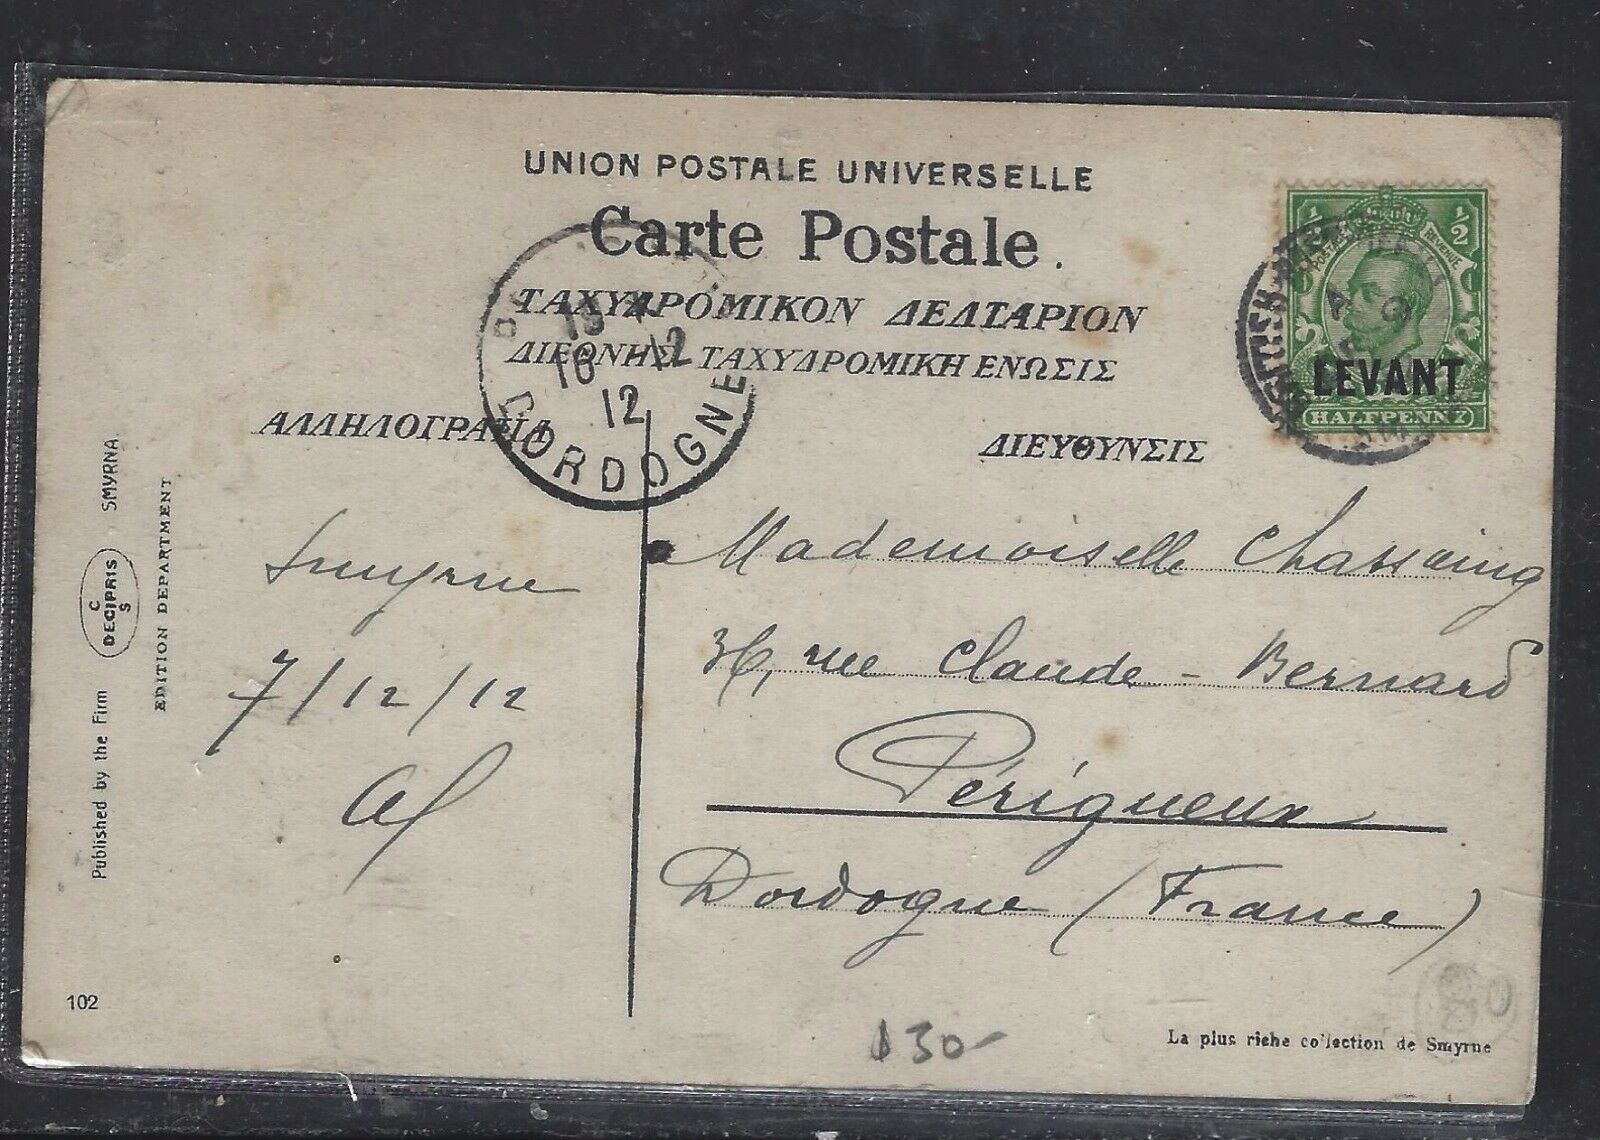 UNION POSTALE UNIVERSELLE
Carte Postale.
ΤΑΧΥΔΡΟΜΙΚΟΝ ΔΕΛΤΑΡΙΟΝ
ΔΙΕΘΝΗΣ ΤΑΧΥΔΡΟΜΙΚΗ ΕΝΩΣΙΣ
ΑΛΛΗΛΟΓΡΑΦΙΑ
ΔΙΕΥΘΥΝΣΙΣ
19
16 12
12
DORDOGNE
½ ½
POSTAGE REVENUE
LEVANT
HALFPENNY
BRITISH
Smyrne
7/12/12
Mademoiselle Chassaing
36, rue Claude-Bernard
Périgueux
Dordogne (France)
Published by the Firm C DECIPRIS S SMYRNA
EDITION DEPARTMENT
102
$30-
La plus riche collection de Smyrne